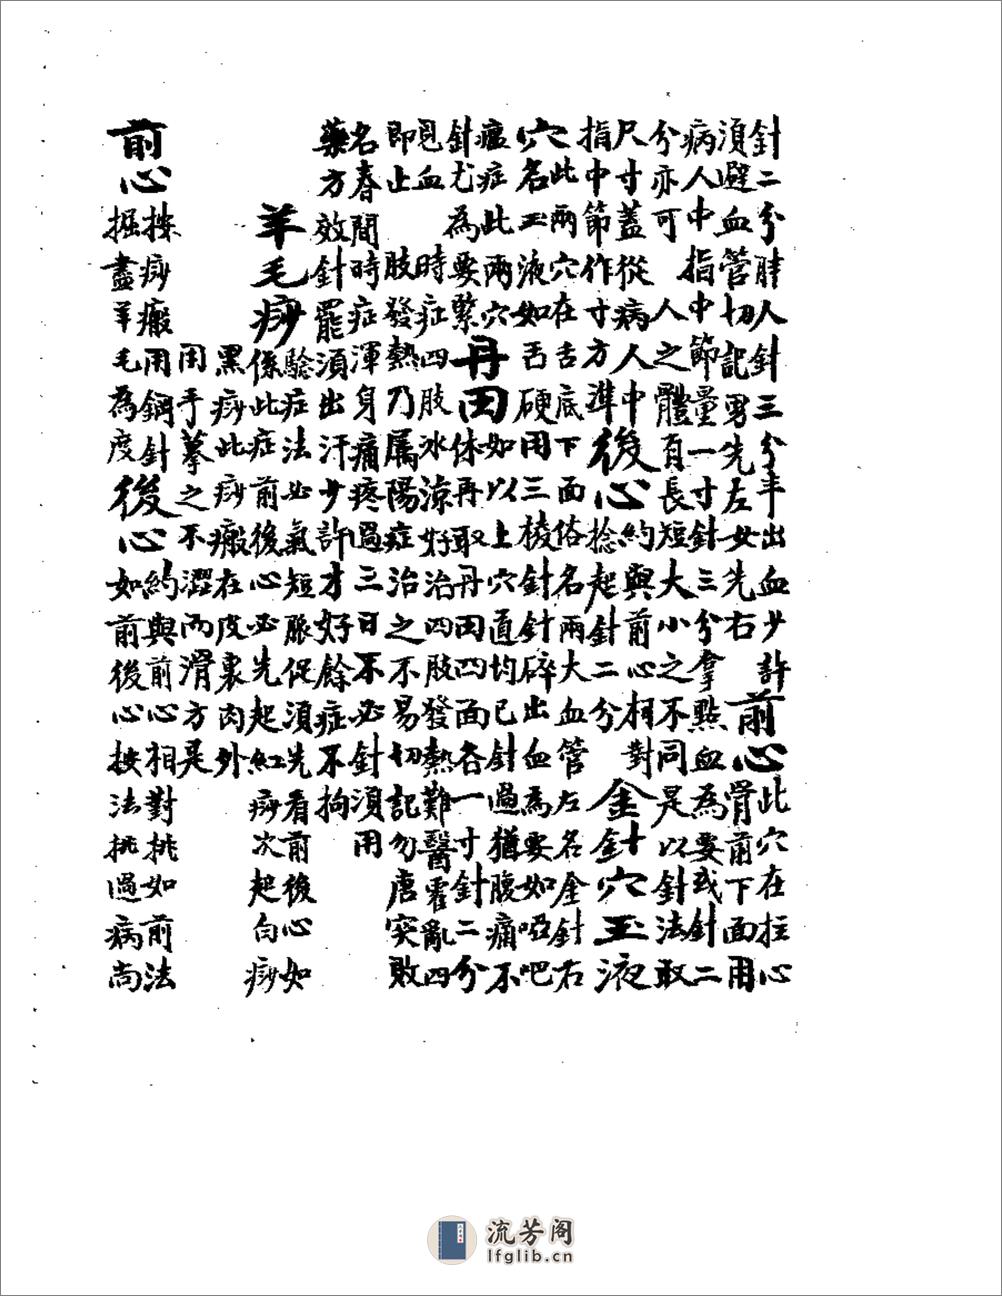 針二分胖人針三分半出血少許前心此穴在拄心
須避血管切記男先左女先右骨前下面用
病人中指中節量一寸針三分拿點血為要或針二
分亦可人之體有長短大小之不同是以針法取
尺寸蓋從病人中
指中節作寸方準
後心
約與前心相對
捻起針二分
金針穴玉液
穴此兩穴在舌底下面俗名兩大血管左名金針右
穴名玉液如舌硬用三棱針針碎出血為要如啞吧
瘟症此兩穴
針尤為要緊
丹田
如以上穴直均已針過猶腹痛不
休再取丹田四面各一寸針二分
見血
即止
時症四肢冰涼好治四肢發熱難醫霍亂四
肢發熱乃屬陽症治之不易切記勿唐突敗
名春間時症渾身痛疼過三日不必針須用
藥方效針罷須出汗少許才好餘症不拘
羊毛痧
驗症法必氣短脈促須先看前後心如
係此症前後心必先起紅痧次起白痧
黑痧此痧瘢在皮裏肉外
用手摹之不澀而滑方是
前心
按痧瘢用鋼針
掘盡羊毛為度
後心
約與前心相對挑如前法
如前後心按法挑過病尚
流芳阁
lfglib.cn